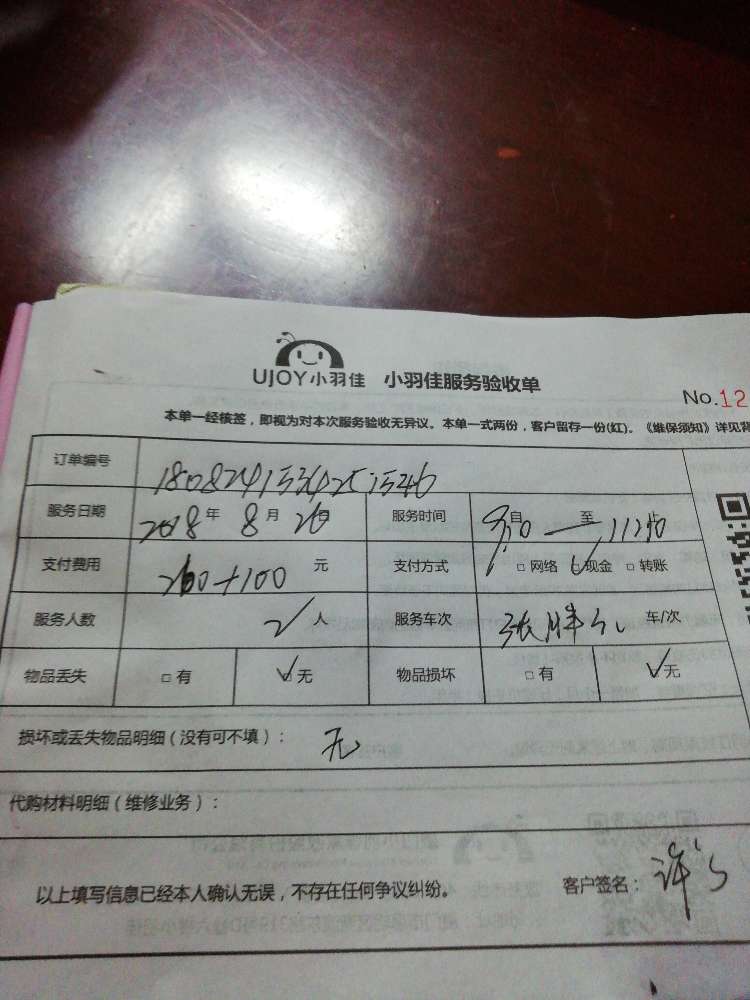 UJOY小羽佳 小羽佳服务验收单
No.12
本单一经核签，即视为对本次服务验收无异议。本单一式两份，客户留存一份(红)。《维保须知》详见背
订单编号 1808241534251546
服务日期 2018年 8月 26日 服务时间 自 至 止
支付费用 200+100 元 支付方式 □ 网络 ☑现金 □ 转账
服务人数 2人 服务车次 车/次
物品丢失 □ 有 ☑无 物品损坏 □ 有 ☑无
损坏或丢失物品明细（没有可不填）： 无
代购材料明细（维修业务）：
以上填写信息已经本人确认无误，不存在任何争议纠纷。 客户签名： 许